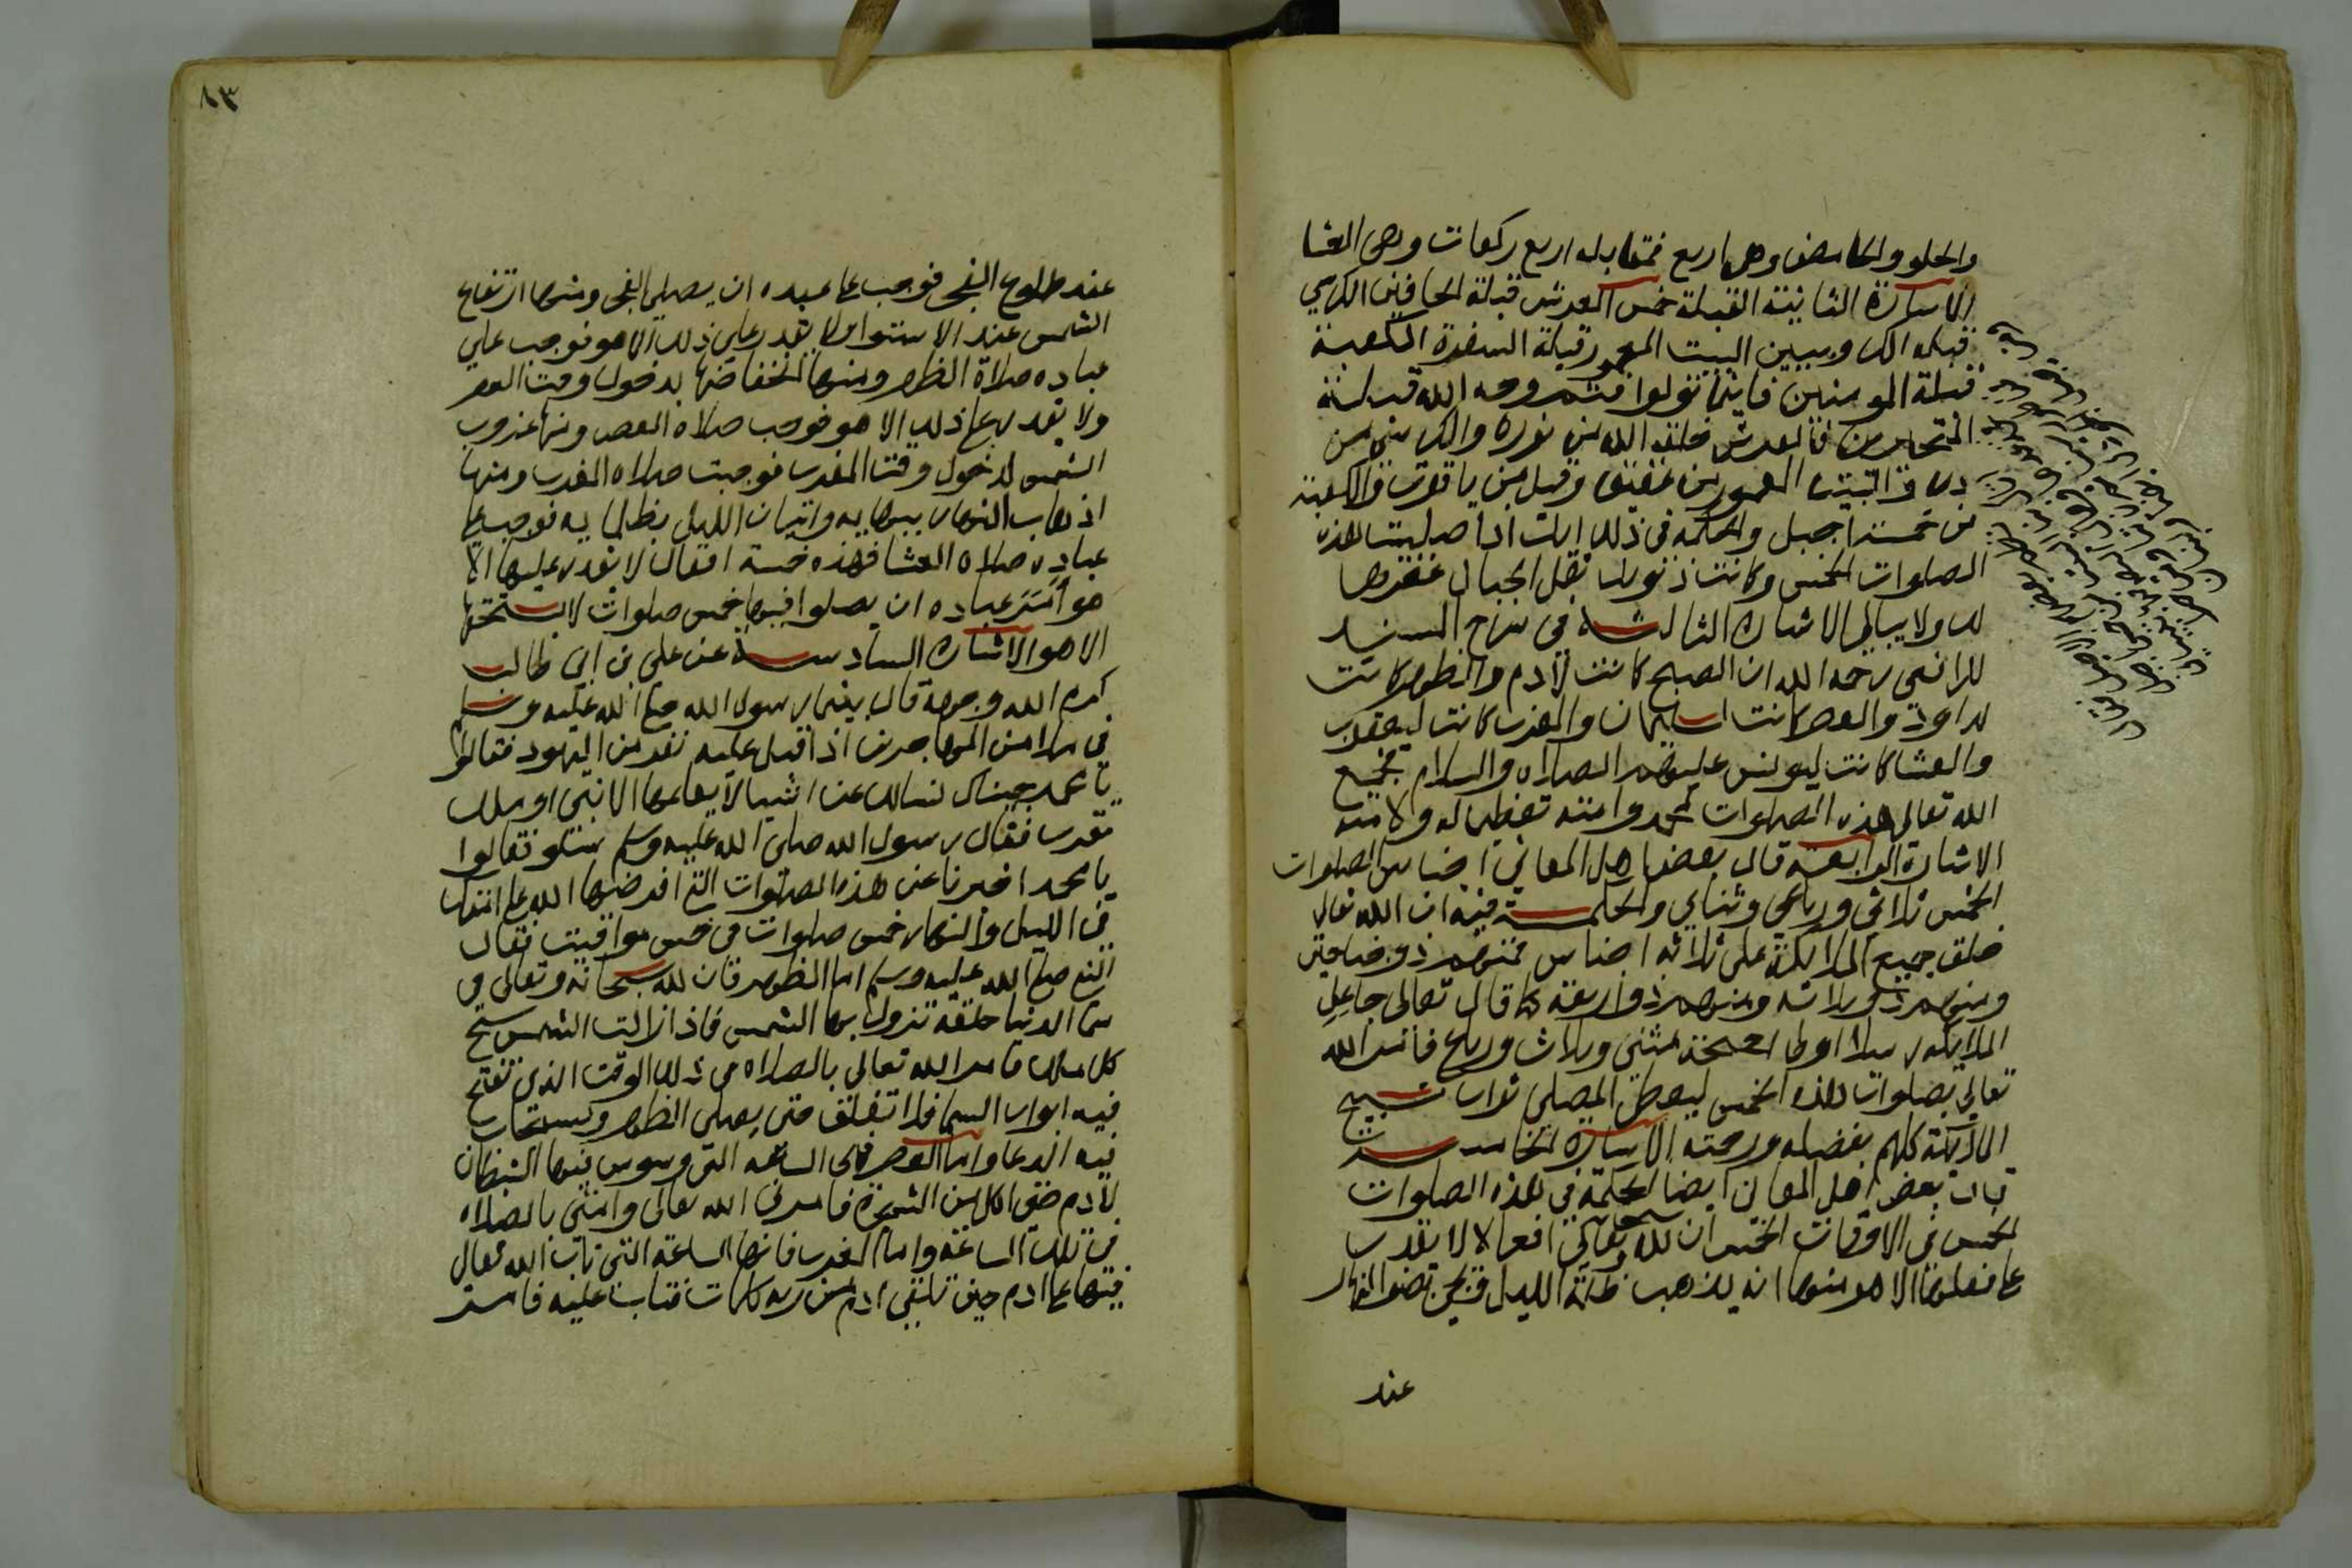 والحلو والحامض وهي اربع فمقابله اربع ركعات وهي العشا
الاشارة الثانية القبلة خمس العرش قبلة الحافين الكرسي
قبله الكروبيين البيت المعمور قبلة السفرة الكعبة
قبلة المومنين فاينما تولوا فثم وجه الله قبلة
المتحيرين فالعرش خلقه الله من نوره والكرسي من
در والبيت المعمور من عقيق وقيل من ياقوت والكعبة
من خمسة اجبل والحكمة في ذلك انك اذا صليت هذه
الصلوات الخمس وكانت ذنوبك ثقل الجبال غفرها
لك ولا يبالي الاشارة الثالثة في شرح المسند
للرافعي رحمه الله ان الصبح كانت لآدم والظهر كانت
لداود والعصر كانت لسليمان والمغرب كانت ليعقوب
والعشا كانت ليونس عليهم الصلاه والسلام فجمع
الله تعالى هذه الصلوات لمحمد وامته تعظيما له ولامته
الاشارة الرابعة قال بعض اهل المعاني اجناس الصلوات
الخمس ثلاثي ورباعي وثنايي والحكمة فيه ان الله تعالى
خلق جميع الملايكة على ثلاثه اجناس فمنهم ذو جناحين
ومنهم ذو ثلاثه ومنهم ذو اربعة كما قال تعالى جاعل
الملايكه رسلا اولي اجنحة مثنى وثلاث ورباع فامر الله
تعالى بصلوات هذه الخمس ليعطى المصلي ثواب تسبيح
الملايكة كلهم بفضله ورحمته الاشارة الخامسة
قال بعض اهل المعاني ايضا الحكمة في هذه الصلوات
الخمس في الاوقات الخمس ان لله سبحانه وتعالى افعالا لا يقدر
على فعلها الا هو منها انه يذهب ظلمة الليل
عند
٨٣
عند طلوع الفجر فوجب على عبيده ان يصلي الفجر ومنها ارتفاع
الشمس عند الاستوا ولا يقدر على ذلك الا هو فوجب علي
عباده صلاة الظهر ومنها انخفاضها بدخول وقت العصر
ولا يقدر على ذلك الا هو فوجب صلاه العصر ومنها غروب
الشمس لدخول وقت المغرب فوجبت صلاه المغرب ومنها
اذهاب النهار بضيايه واتيان الليل بظلمايه فوجب على
عباده صلاه العشا فهذه خمسة افعال لا يقدر عليها الا
هو امر عباده ان يصلوا فيها خمس صلوات لا يستحقها
الا هو الاشارة السادسة عن علي بن ابي طالب
كرم الله وجهه قال بينما رسول الله صلى الله عليه وسلم
في ملا من المهاجرين اذ اقبل عليه نفر من اليهود فقالوا
يا محمد جيناك نسالك عن اشيا لا يعلمها الا نبي او ملك
مقرب فقال رسول الله صلى الله عليه وسلم سلو فقالوا
يا محمد اخبرنا عن هذه الصلوات التي افترضها الله على امتك
في الليل والنهار خمس صلوات في خمس مواقيت فقال
النبي صلى الله عليه وسلم اما الظهر فان لله سبحانه وتعالى في
سما الدنيا حلقة تزول بها الشمس فاذا زالت الشمس سبح
كل ملك فامر الله تعالى بالصلاه في ذلك الوقت الذي تفتح
فيه ابواب السما فلا تغلق حتى يصلى الظهر ويستجاب
فيه الدعا واما العصر فهي الساعه التي وسوس فيها الشيطان
لآدم حتى اكل من الشجرة فامرني الله تعالى وامتي بالصلاه
في تلك الساعة واما المغرب فانها الساعة التي تاب الله تعالى
فيها على ادم حين تلقى ادم من ربه كلمات فتاب عليه فامر